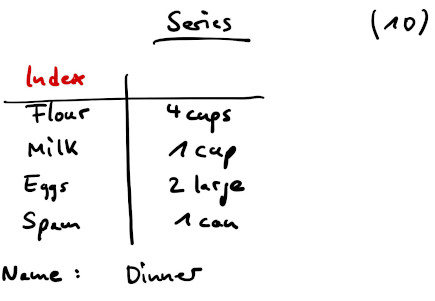 Series (10)
Index
Flour 4 cups
Milk 1 cup
Eggs 2 large
Spam 1 can
Name : Dinner